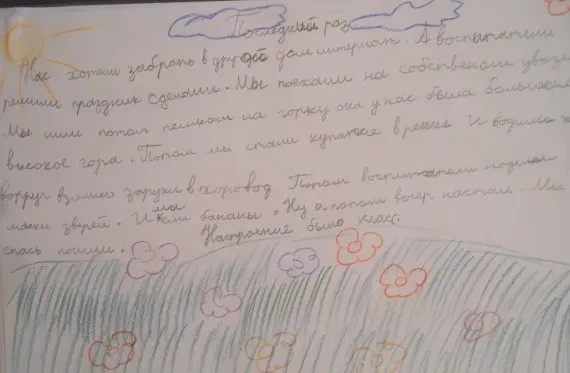 Последний раз
Нас хотели забрать в другой дом интернат. А воспитатели
решили праздник сделали. Мы поехали на собственом
Мы шли потом пешком на горку она у нас была
высокое гора. Потом мы стали купатся в речке И водили
вокруг взялись заруки в хоровод Потом воспитатели надели
маски зверей. И мы ели бананы. Ну а потом вечер настал. Мы
спась пошли. Настроение было класс.